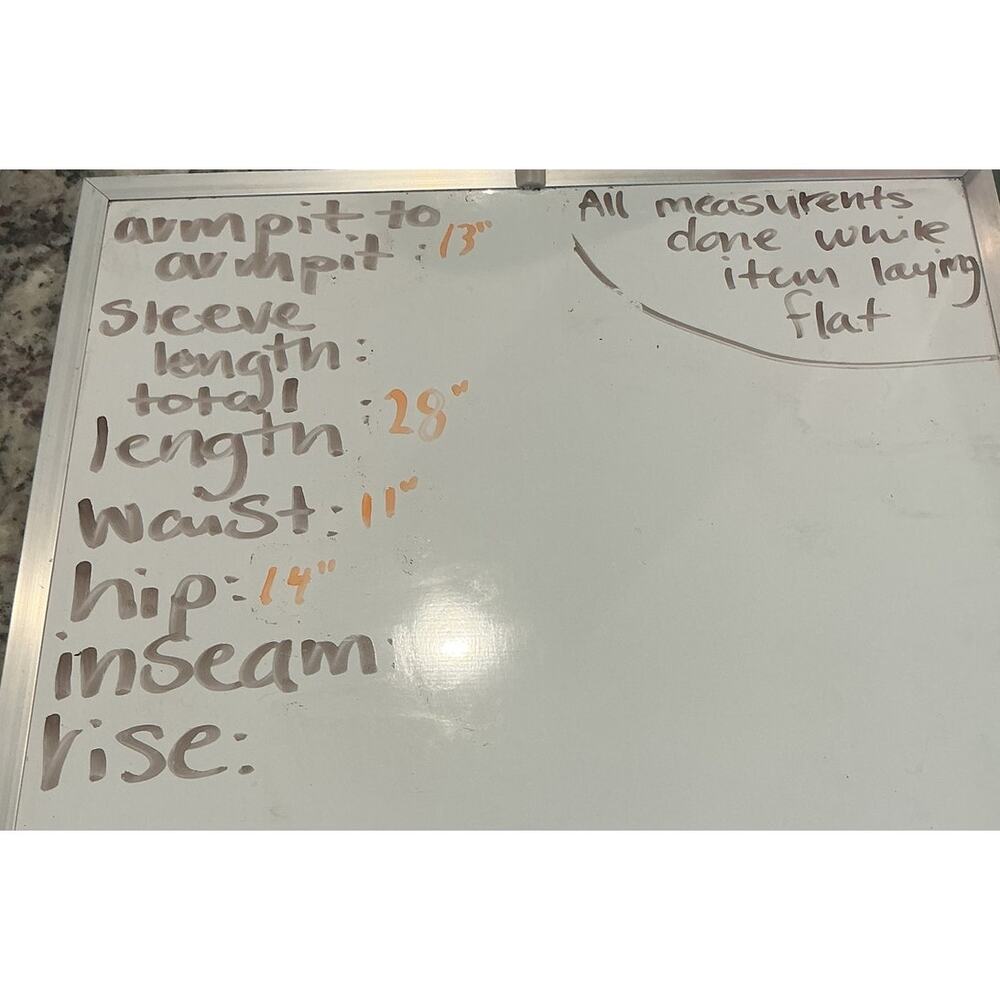 armpit to
armpit : 13"
sleeve
length:
total
length : 28"
waist: 11"
hip: 14"
inseam:
rise:
All measurents
done while
item laying
flat